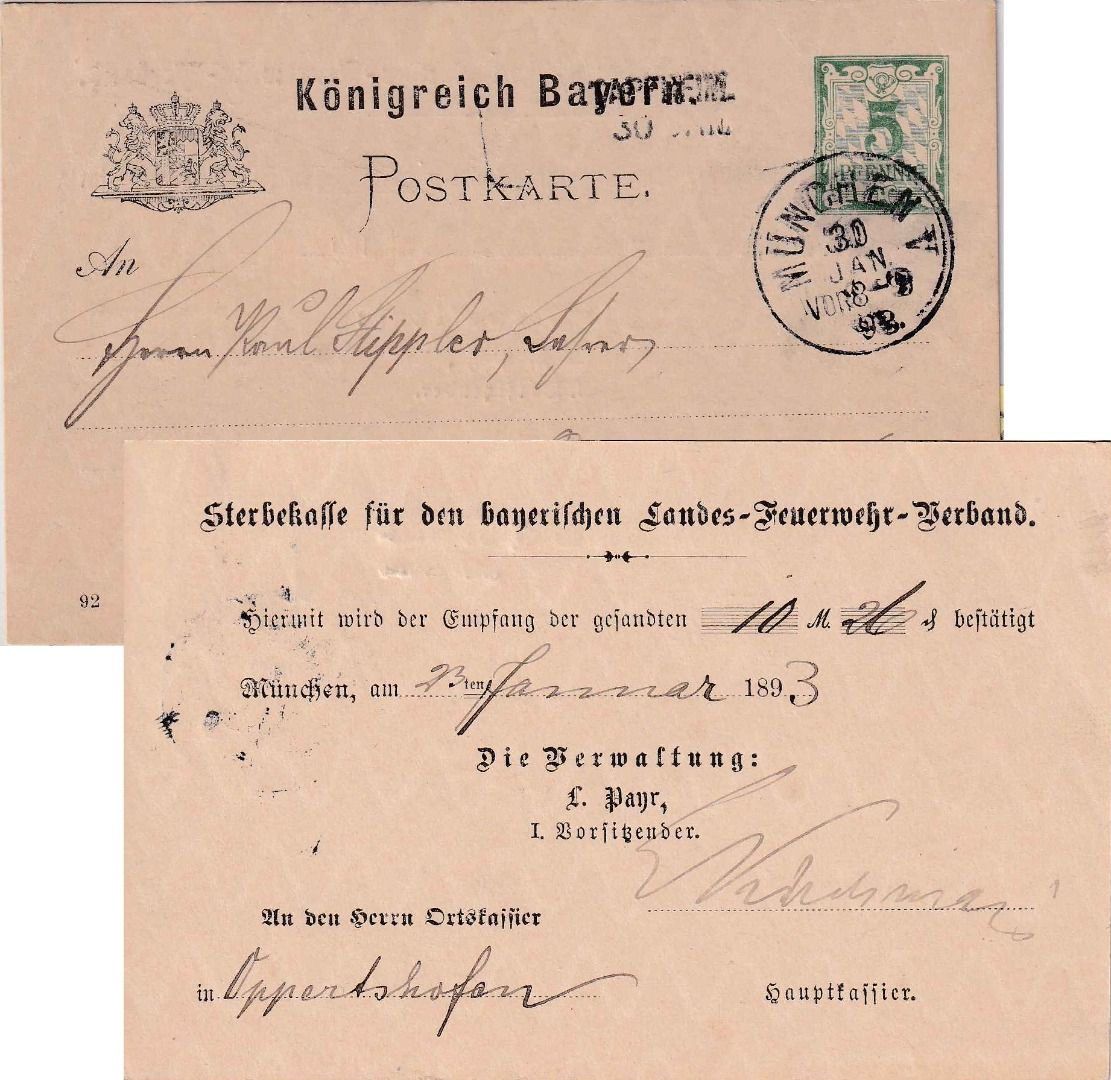 Königreich Bayern.
30
POSTKARTE.
5
MÜNCHEN V
30
JAN.
VOR 8-9
93.
An
Herrn Paul Stippler, Lehrer
92
Sterbekasse für den bayerischen Landes-Feuerwehr-Verband.
Hiermit wird der Empfang der gesandten 10 M. 26 ₰ bestätigt
München, am 23ten Januar 1893
Die Verwaltung:
L. Payr,
I. Vorsitzender.
An den Herrn Ortskassier
in Oppertshofen
Hauptkassier.